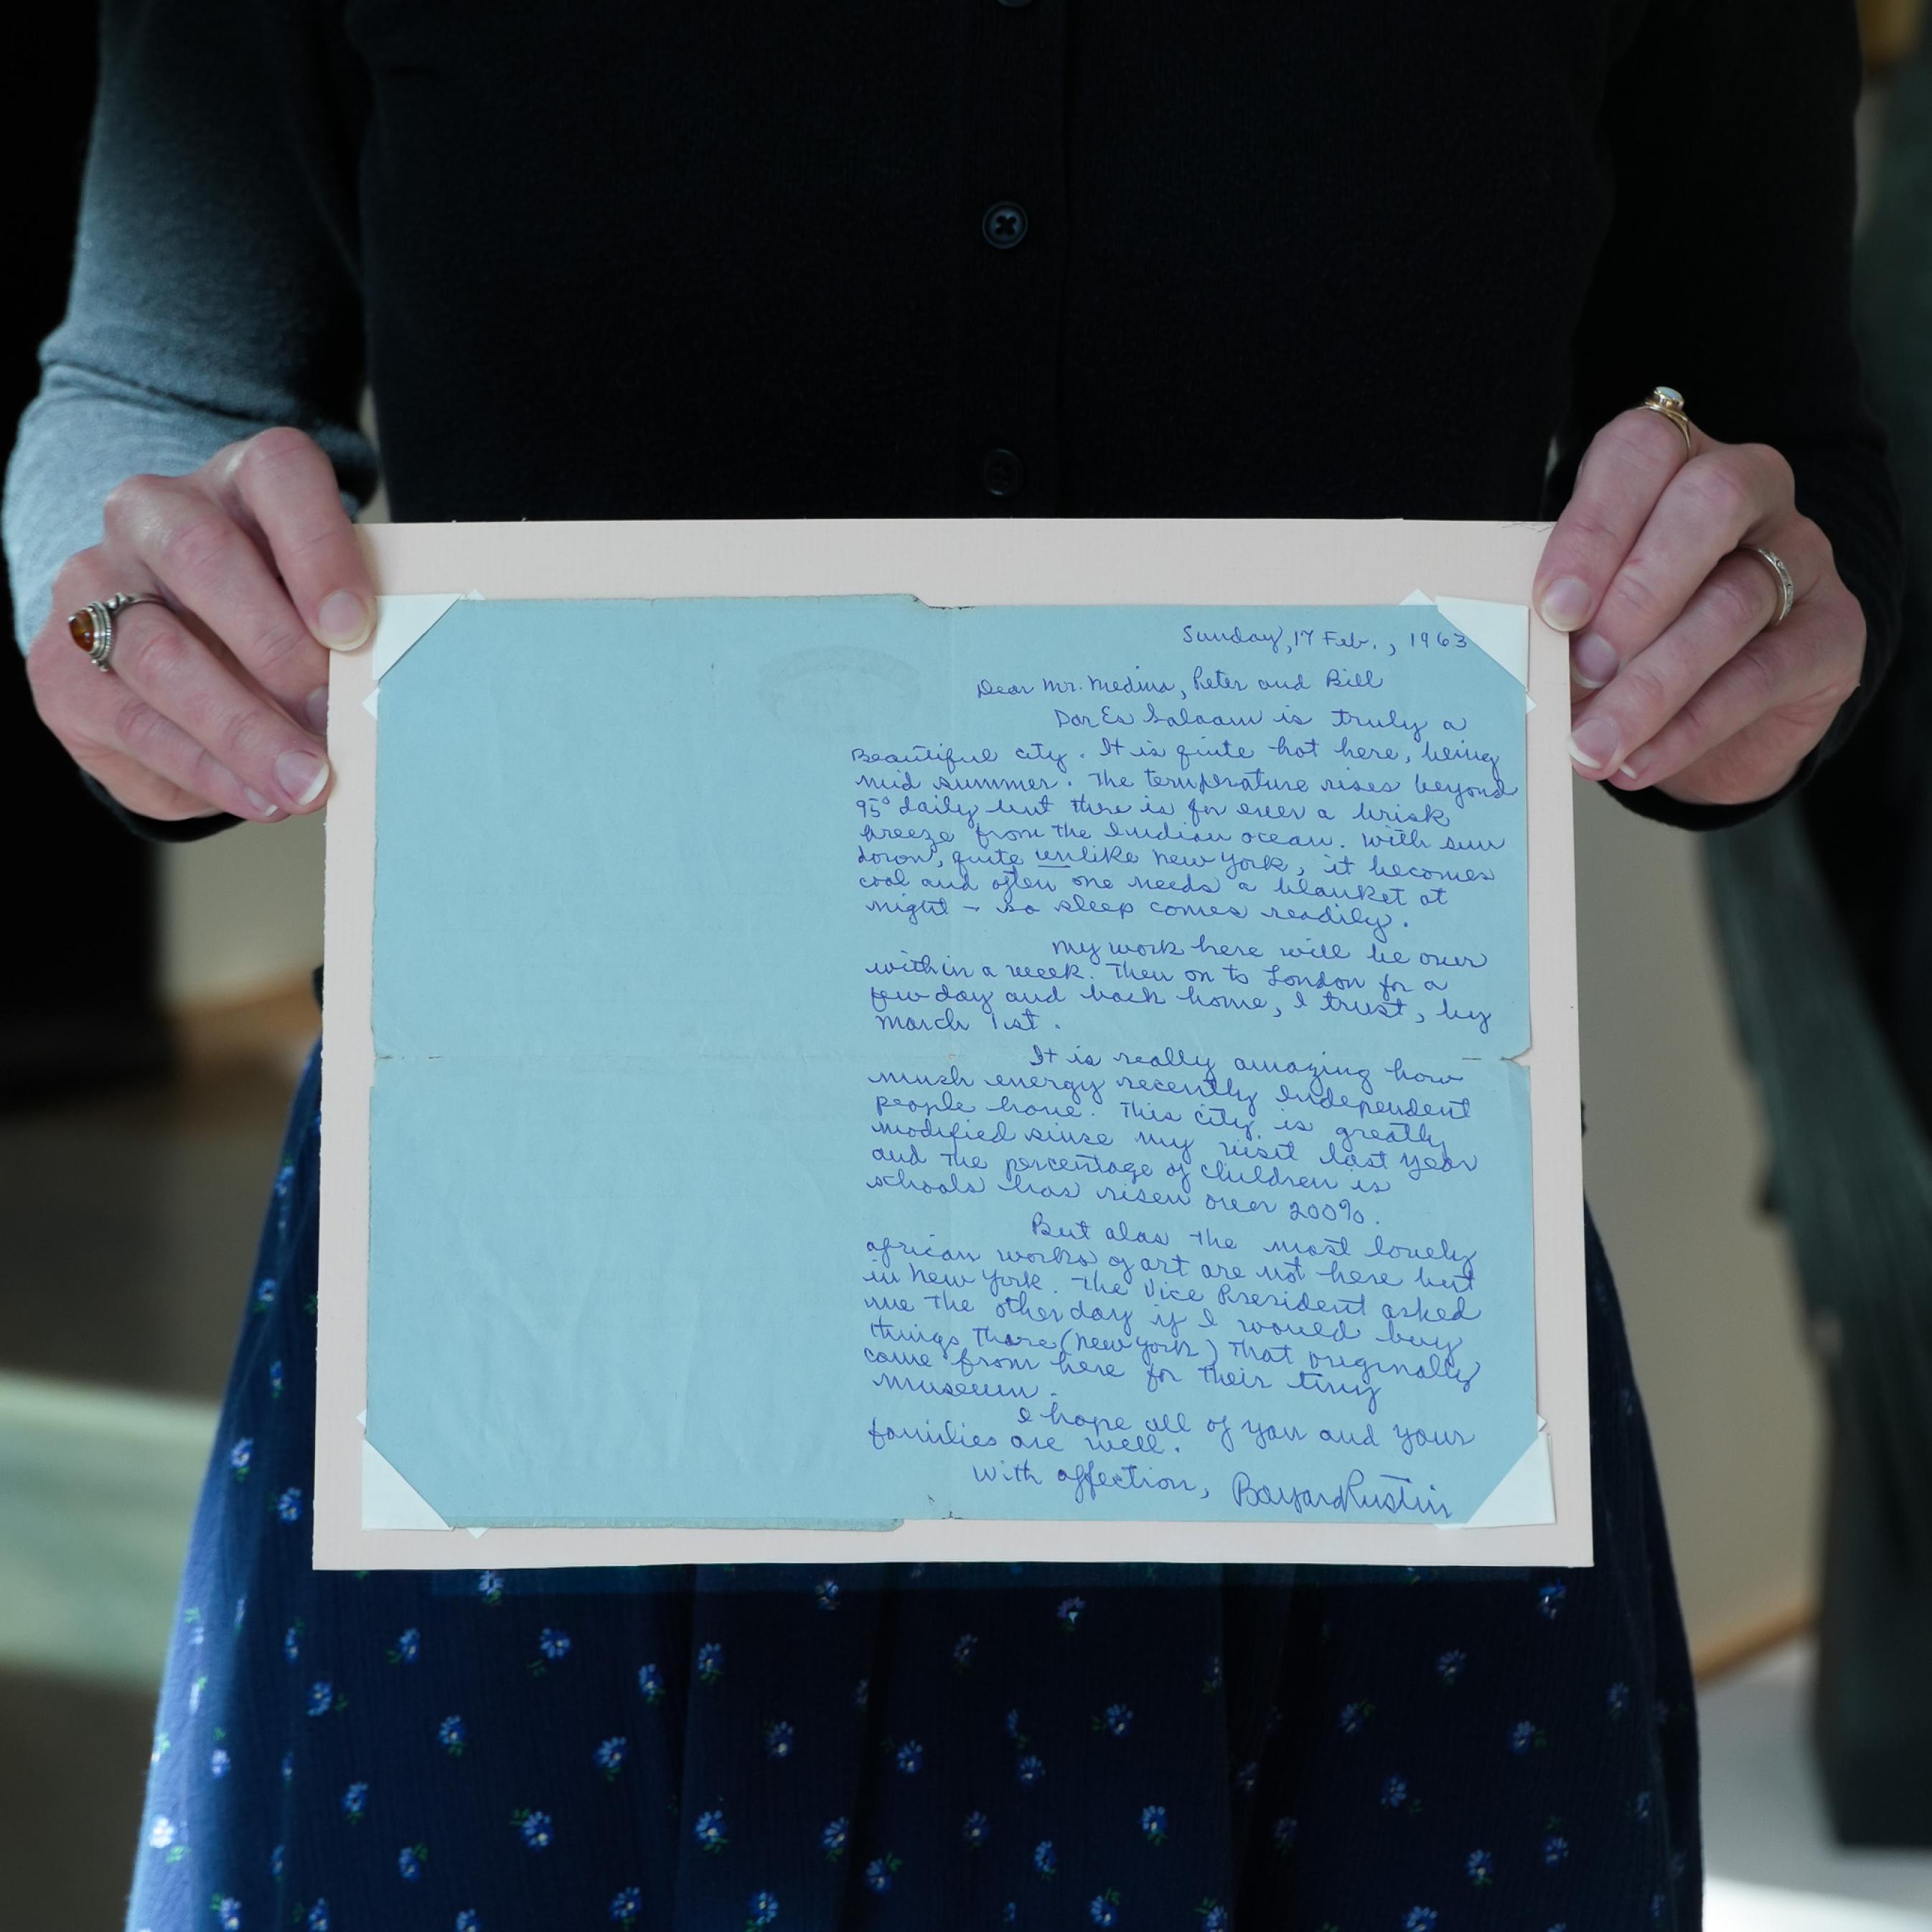 Sunday, 17 Feb., 1963
Dear Mr. Medina, Peter and Bill
Dar Es Salaam is truly a
Beautiful city. It is quite hot here, being
mid summer. The temperature rises beyond
95° daily but there is for ever a brisk
breeze from the Indian ocean. With sun
down, quite unlike New York, it becomes
cool and often one needs a blanket at
night - so sleep comes readily.
My work here will be over
within a week. Then on to London for a
few day and back home, I trust, by
March 1st.
It is really amazing how
much energy recently Independent
people have. This city is greatly
modified since my visit last year
and the percentage of children is
schools has risen over 200%.
But alas the most lovely
african works of art are not here but
in New York. The Vice President asked
me the other day if I would buy
things there (New York) that originally
came from here for their tiny
museum.
I hope all of you and your
families are well.
With affection, Bayard Rustin